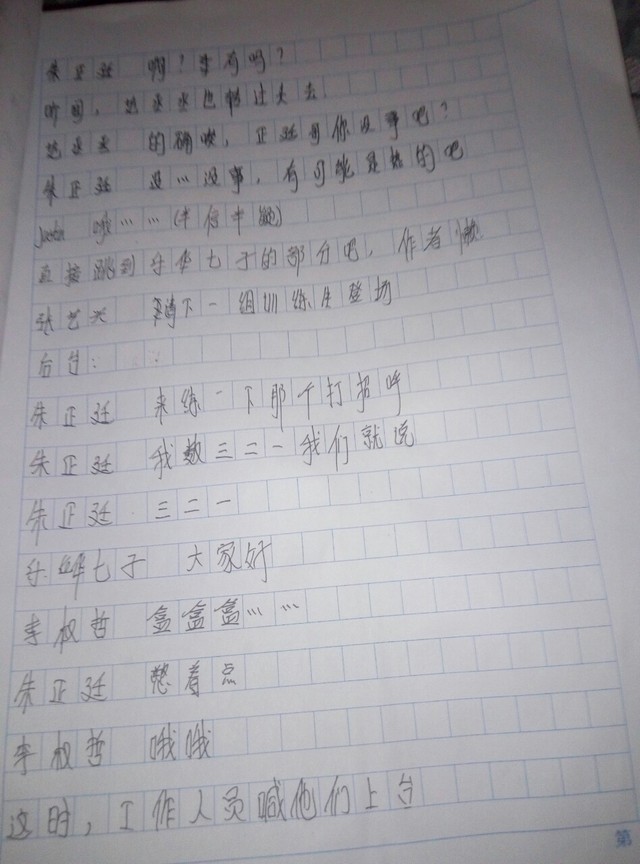 朱正廷 啊？李有吗？
听图，范丞丞也转过去
范丞丞 的确哎，正廷哥你没事吧？
朱正廷 没…没事，有可能是热的吧
Justin 哦……(中
直接跳到乐华七子的部分吧，作者懒
张艺兴 请下一组训练生登场
后台：
朱正廷 来练一下那个打招呼
朱正廷 我数三二一我们就说
朱正廷 三二一
乐华七子 大家好
李权哲 盒盒盒……
朱正廷 憋着点
李权哲 哦哦
这时，工作人员喊他们上台
第